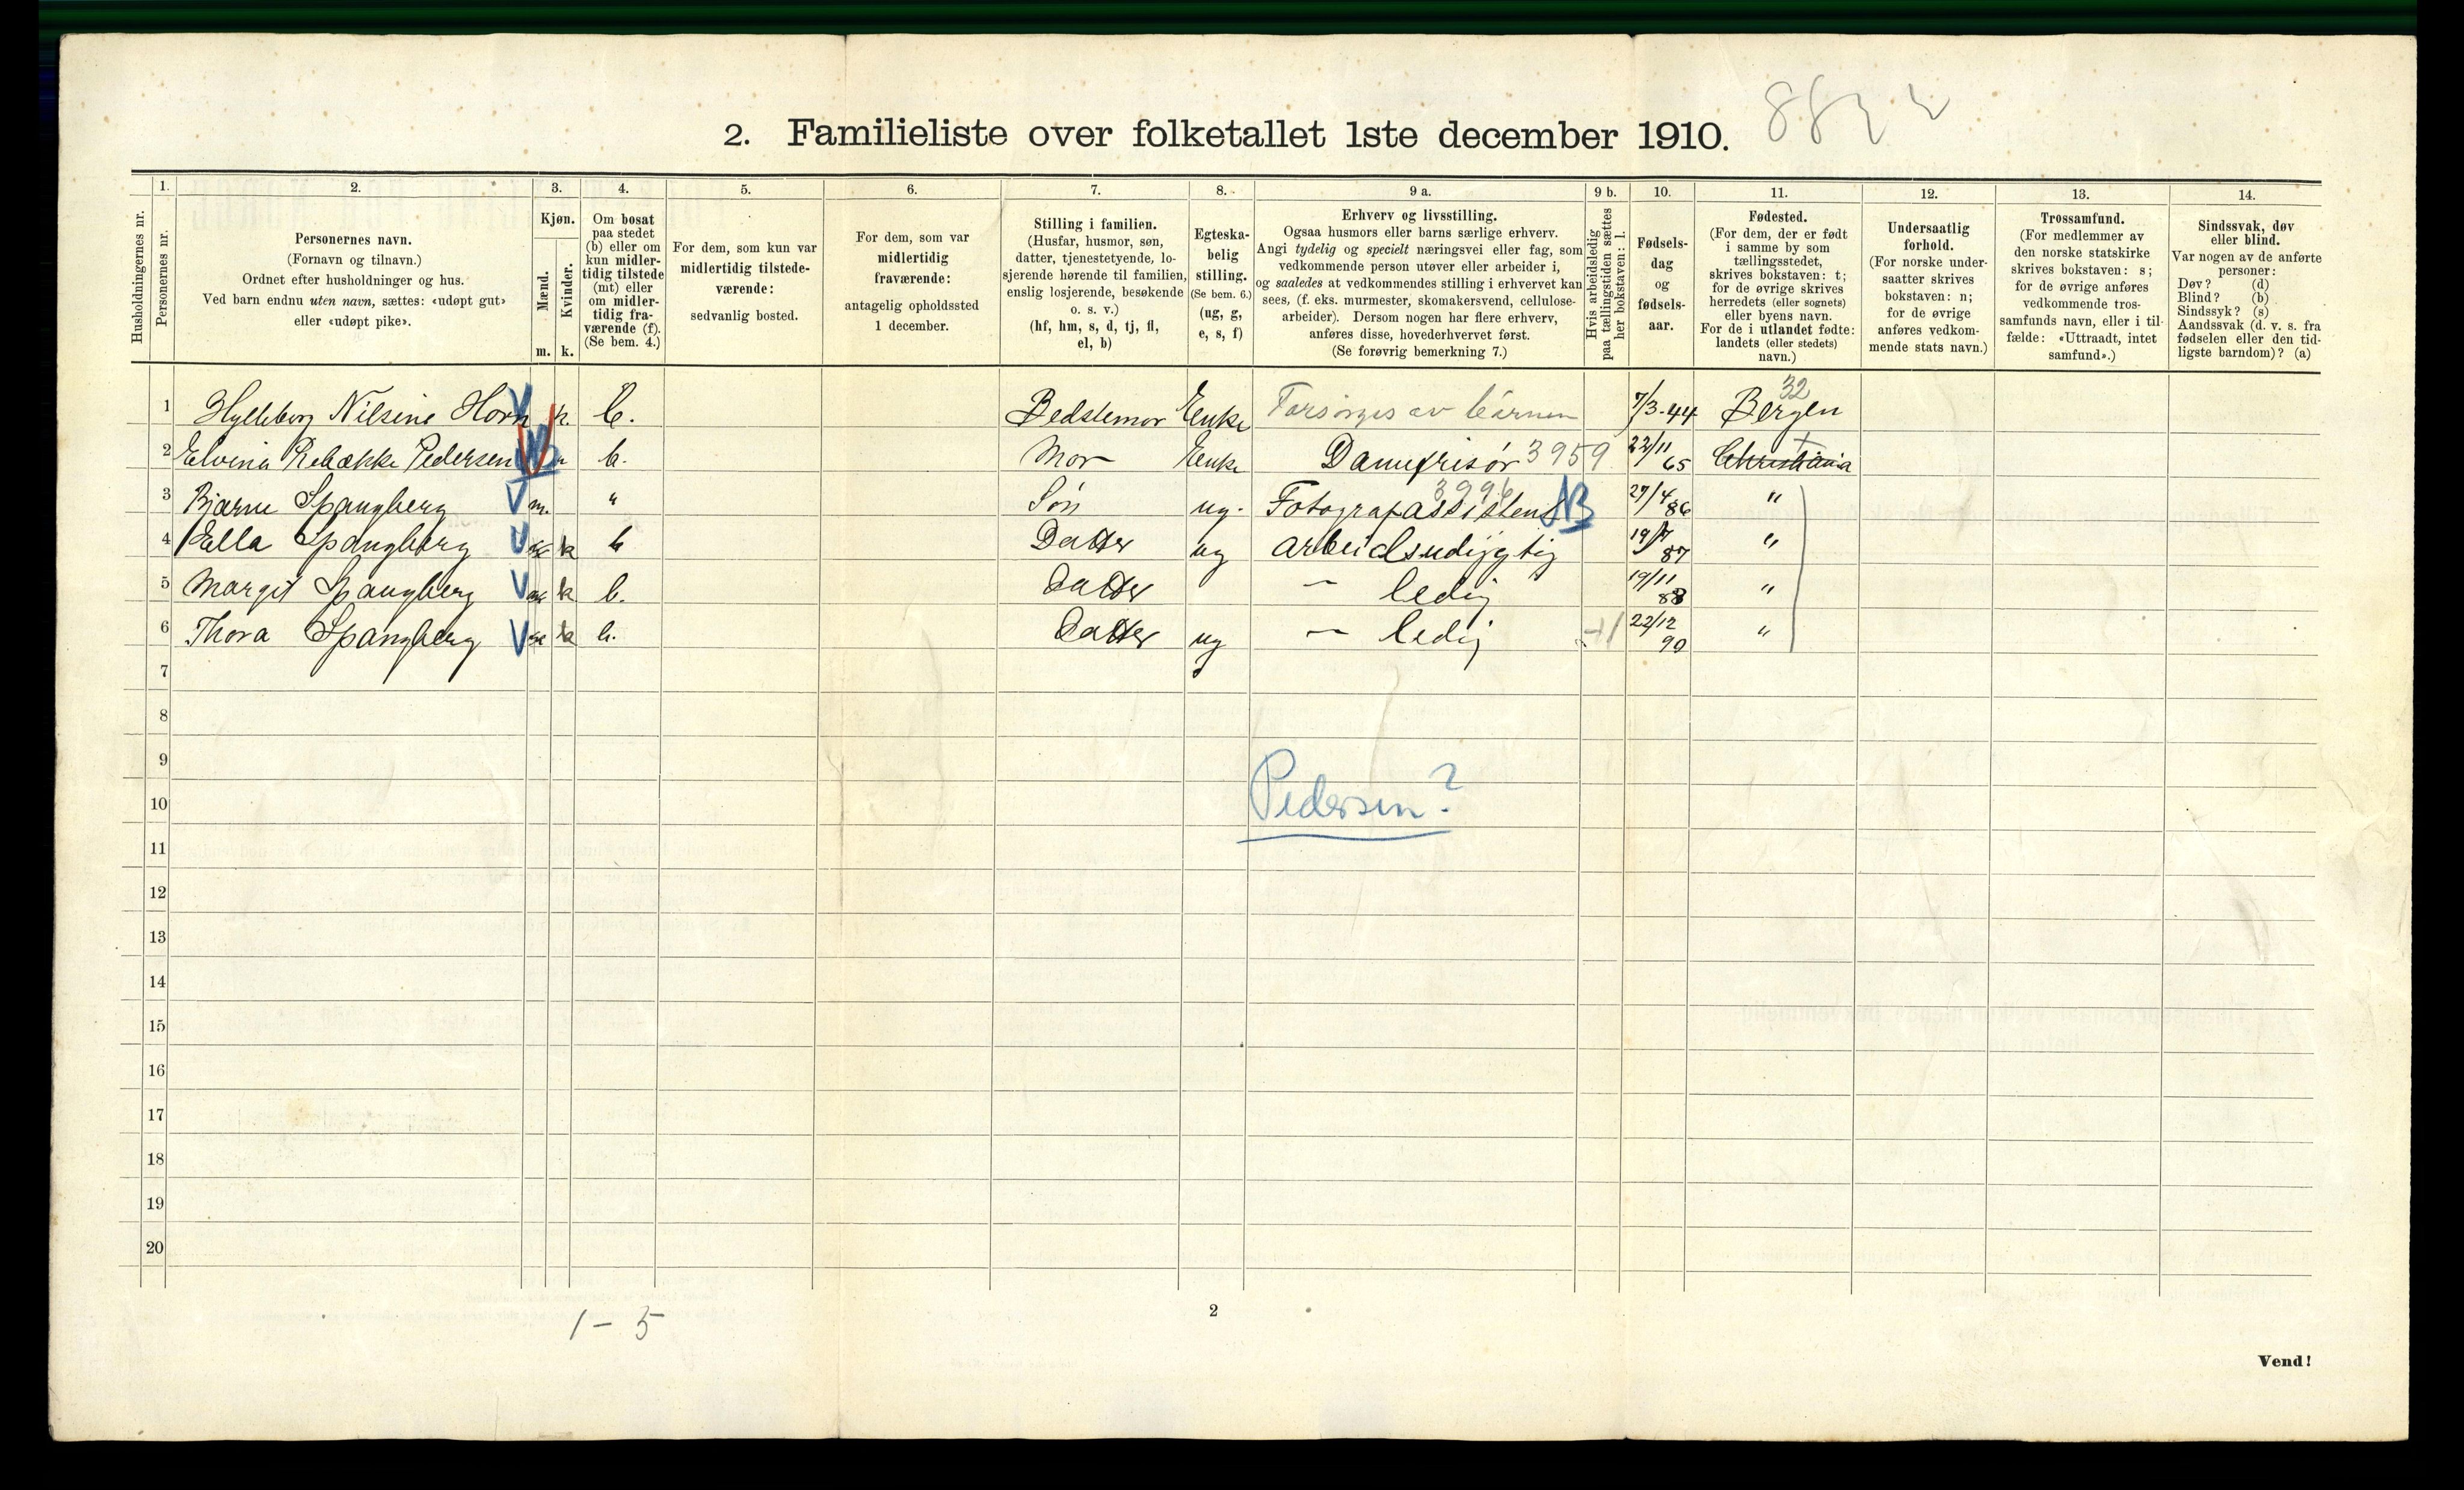 2. Familieliste over folketallet 1ste december 1910.
1. 2. 3. 4. 5. 6. 7. 8. 9 a. 9 b. 10. 11. 12. 13. 14.
Husholdningernes nr.
Personernes nr.
Personernes navn.
(Fornavn og tilnavn.)
Ordnet efter husholdninger og hus.
Ved barn endnu uten navn, sættes: «udøpt gut»
eller «udøpt pike».
Kjøn.
Mænd.
Kvinder.
m. k.
Om bosat
paa stedet
(b) eller om
kun midler-
tidig tilstede
(mt) eller
om midler-
tidig fra-
værende (f).
(Se bem. 4.)
For dem, som kun var
midlertidig tilstede-
værende:
sedvanlig bosted.
For dem, som var
midlertidig
fraværende:
antagelig opholdssted
1 december.
Stilling i familien.
(Husfar, husmor, søn,
datter, tjenestetyende, lo-
sjerende hørende til familien,
enslig losjerende, besøkende
o. s. v.)
(hf, hm, s, d, tj, fl,
el, b)
Egteska-
belig
stilling.
(Se bem. 6.)
(ug, g,
e, s, f)
Erhverv og livsstilling.
Ogsaa husmors eller barns særlige erhverv.
Angi tydelig og specielt næringsvei eller fag, som
vedkommende person utøver eller arbeider i,
og saaledes at vedkommendes stilling i erhvervet kan
sees, (f. eks. murmester, skomakersvend, cellulose-
arbeider). Dersom nogen har flere erhverv,
anføres disse, hovederhvervet først.
(Se forøvrig bemerkning 7.)
Hvis arbeidsledig
paa tællingstiden sættes
her bokstaven: l.
Fødsels-
dag
og
fødsels-
aar.
Fødested.
(For dem, der er født
i samme by som
tællingsstedet,
skrives bokstaven: t;
for de øvrige skrives
herredets (eller sognets)
eller byens navn.
For de i utlandet fødte:
landets (eller stedets)
navn.)
Undersaatlig
forhold.
(For norske under-
saatter skrives
bokstaven: n;
for de øvrige
anføres vedkom-
mende stats navn.)
Trossamfund.
(For medlemmer av
den norske statskirke
skrives bokstaven: s;
for de øvrige anføres
vedkommende tros-
samfunds navn, eller i til-
fælde: «Uttraadt, intet
samfund».)
Sindssvak, døv
eller blind.
Var nogen av de anførte
personer:
Døv? (d)
Blind? (b)
Sindssyk? (s)
Aandssvak (d. v. s. fra
fødselen eller den tid-
ligste barndom)? (a)
32
1 Hylleborg Nilsine Horn k. b. Bedstemor Enke Forsørges av børnene 7/3-44 Bergen
2 Elvina Rebekke Pedersen b. Mor Enke Damefrisør 3959 22/11 65 Christiania t
3 Bjarne Spangberg m. " Søn ug. Fotografassistent 3996 27/4 86 "
4 Ella Spangberg k b Datter ug arbeidsudygtig 19/7 87 "
5 Margit Spangberg k b. Datter — ledig 19/11 88 "
6 Thora Spangberg k b. Datter ug — ledig 22/12 90 "
7
8
9
Pedersen?
10
11
12
13
14
15
16
17
18
19
20
1 - 5
2
Vend!